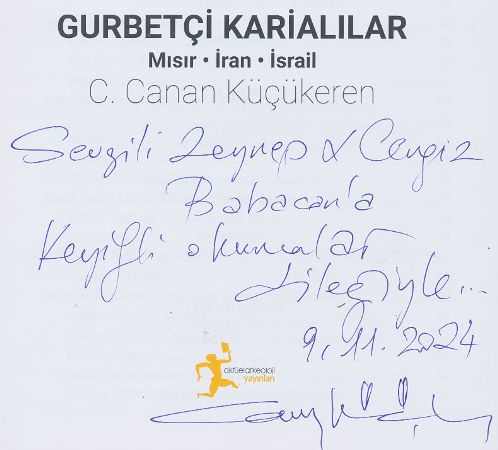 GURBETÇİ KARİALILAR
Mısır • İran • İsrail
C. Canan Küçükeren
Sevgili Zeynep & Cengiz
Babacan'a
Keyifli okumalar
dileğiyle...
9.11.2024
aktüelarkeoloji
yayınları